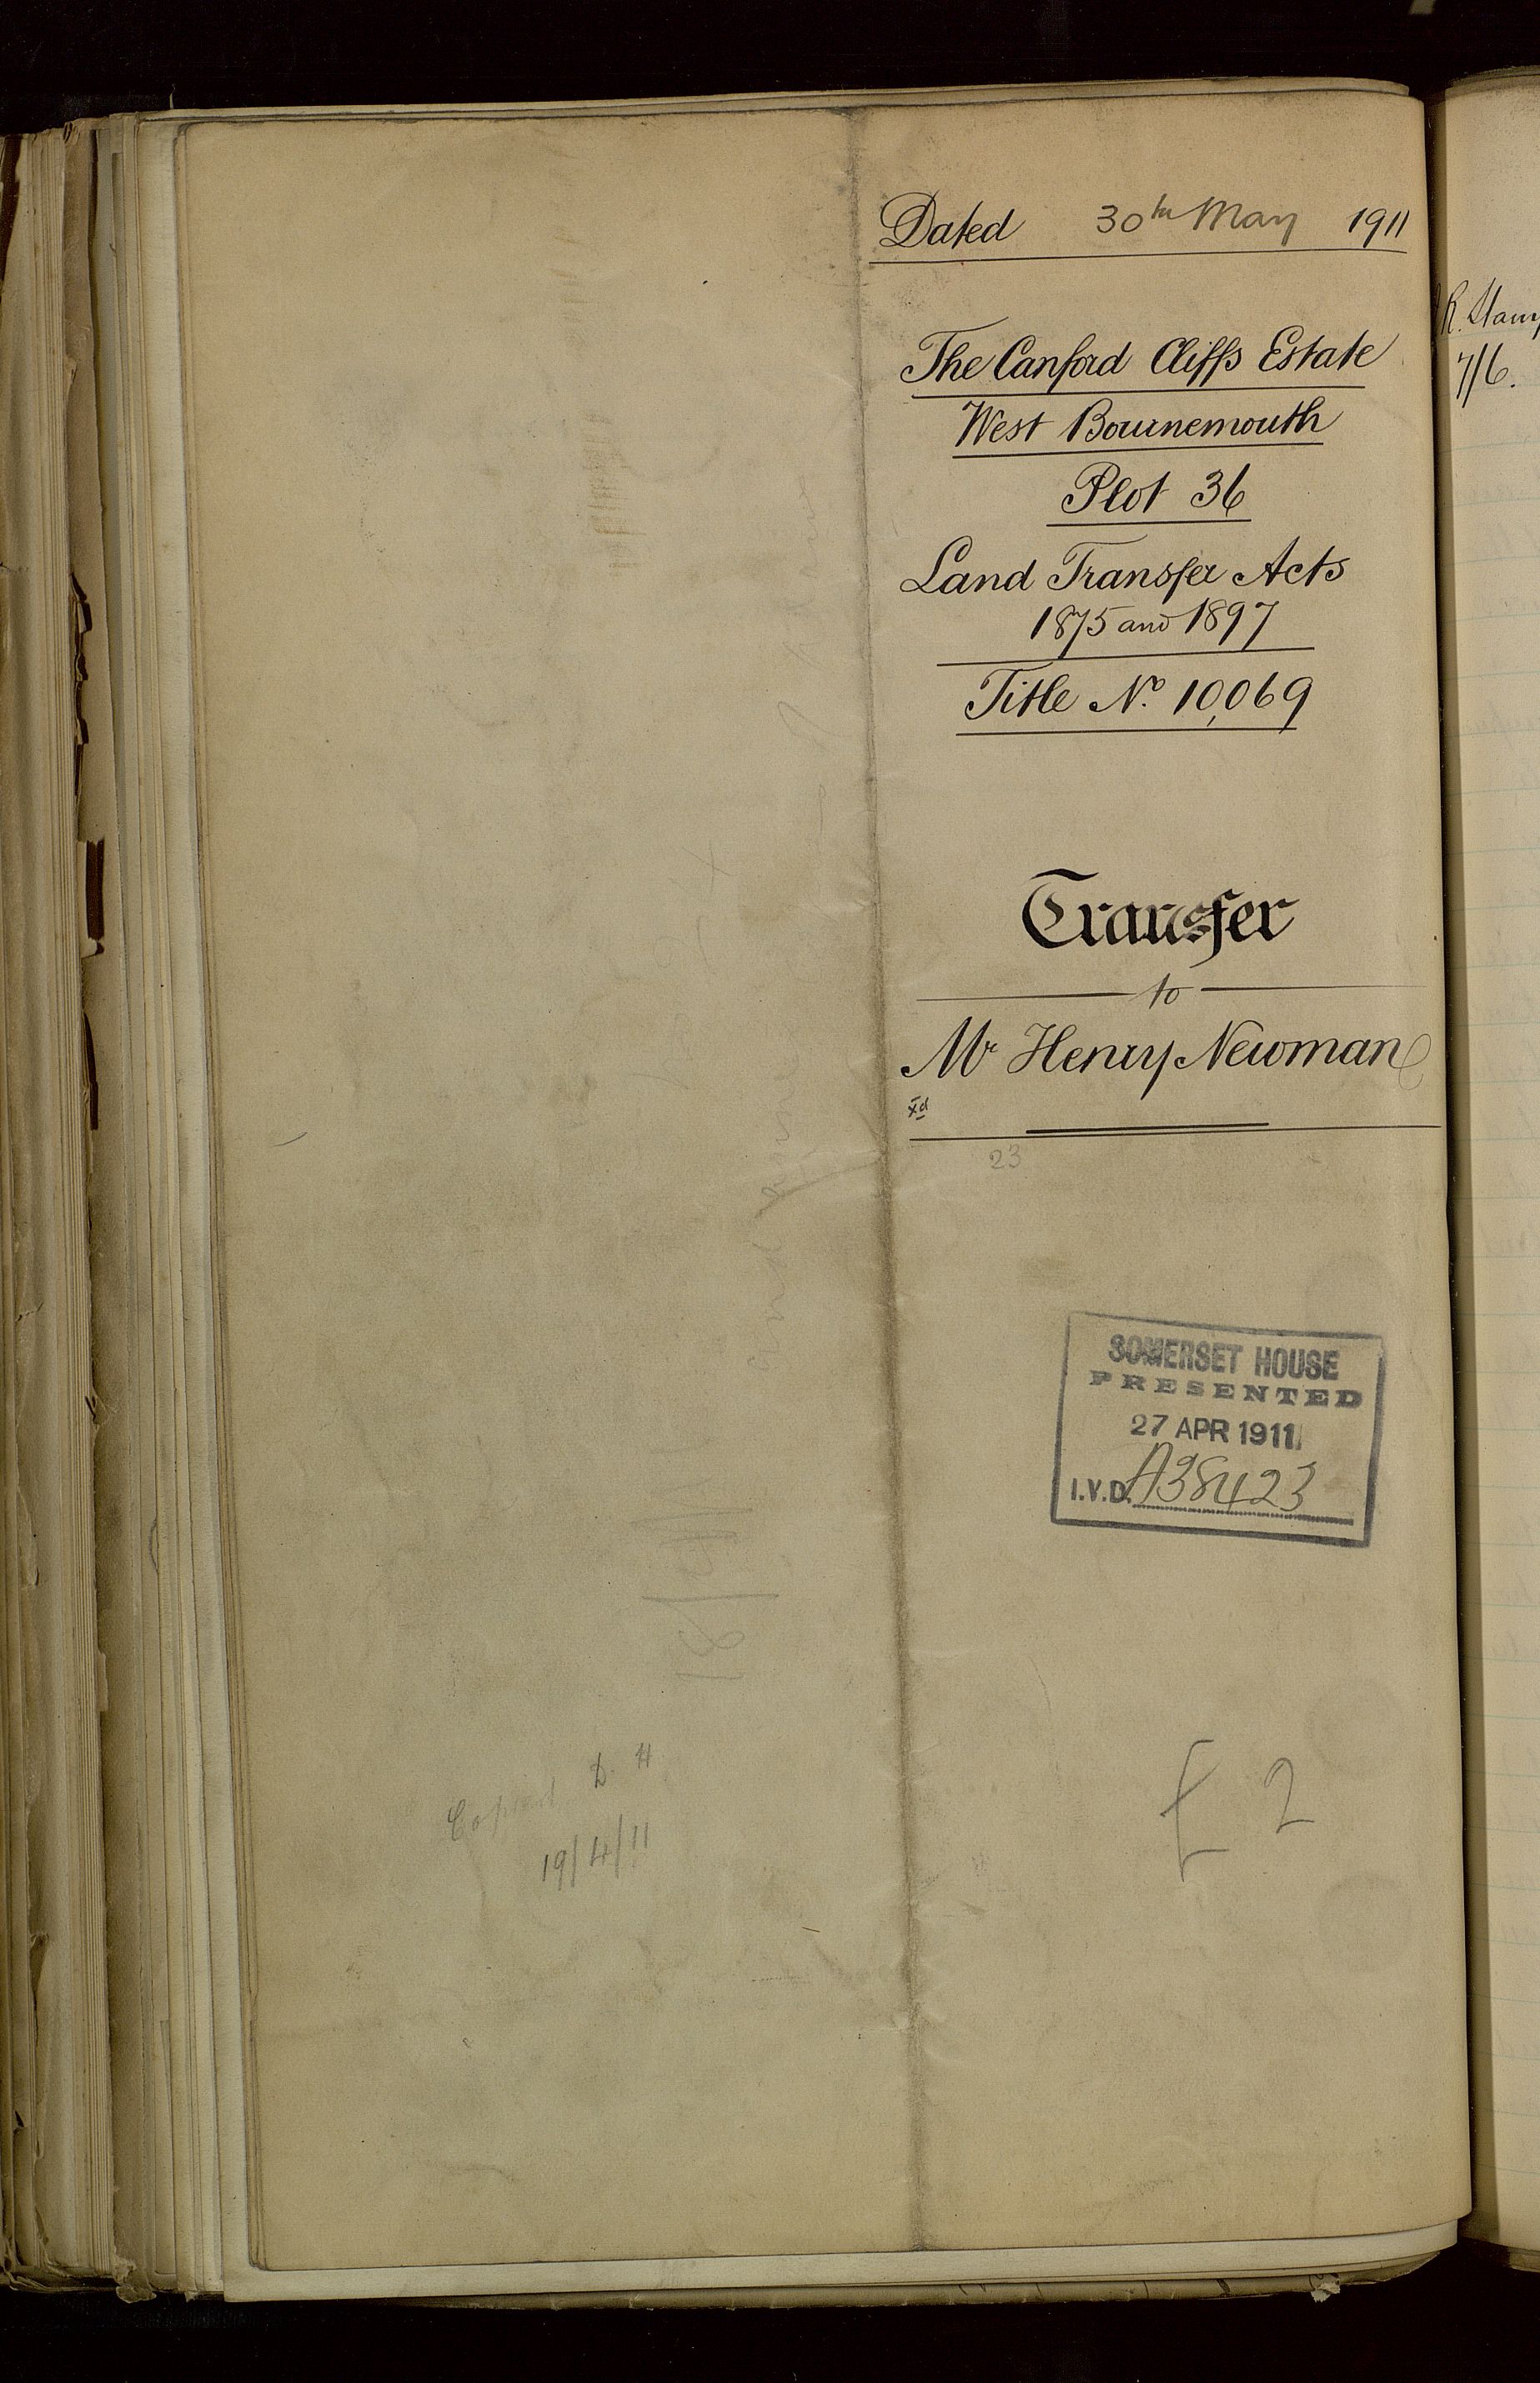 Dated 30th May 1911
The Canford Cliffs Estate
West Bournemouth
Plot 36
Land Transfer Acts
1875 and 1897
Title No. 10,069
Transfer
to
Mr Henry Newman
Xd
23
SOMERSET HOUSE
PRESENTED
27 APR 1911
I.V.D. A38423
£ 2
Copied D. H
19/4/11
7/6.